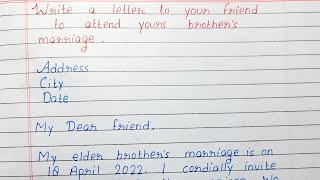 Write a letter to your friend
to attend yours brother's
marriage.
Address
City
Date
My Dear friend.
My elder brother's marriage is on
18 April 2022. I cordially invite